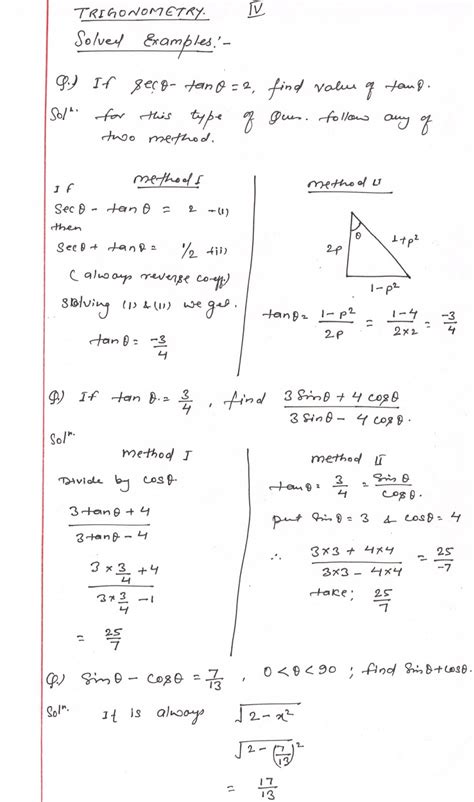 TRIGONOMETRY. IV
Solved Examples:-
Q.) If secθ - tanθ = 2, find value of tanθ.
Solⁿ. for this type of Ques. follow any of
two method.
method I
If
secθ - tanθ = 2 -(i)
then
secθ + tanθ = 1/2 -(ii)
(always reverse coeff)
solving (i) & (ii) we get.
tanθ = -3/4
method II
θ
2p
1+p²
1-p²
tanθ = (1-p²)/2p = (1-4)/(2×2) = -3/4
Q.) If tan θ = 3/4, find (3 sinθ + 4 cosθ)/(3 sinθ - 4 cosθ).
Solⁿ.
method I
Divide by cosθ.
(3 tanθ + 4)/(3 tanθ - 4)
(3 × 3/4 + 4)/(3 × 3/4 - 1)
= 25/7
method II
tanθ = 3/4 = sinθ/cosθ.
put sinθ = 3 & cosθ = 4
∴ (3×3 + 4×4)/(3×3 - 4×4) = 25/-7
take; 25/7
Q.) sinθ - cosθ = 7/13, 0 < θ < 90; find sinθ + cosθ.
Solⁿ. It is always √(2 - x²)
√(2 - (7/13)²)
= 17/13